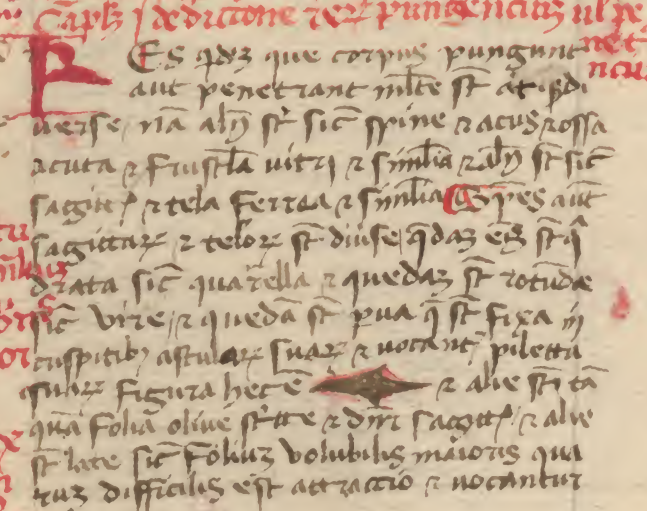 Capłz de dictone rerꝝ pungenciuz ul pe
net
Es qdaz que corpus pungunt
ncu
aut penetrant mlte st at diuerse
uerse, nā alij st sic spine ⁊ acus ⁊ ossa
acuta ⁊ frustla uitri ⁊ similia ⁊ alij st sic
sagitt ⁊ tela ferrea ⁊ similia Spēs aut
sagittaꝝ ⁊ teloꝝ st diuse, qdaz eis st q
drata sic quarella ⁊ quedaz st rotūdae
sic vire, ⁊ quedā st pua q st fixa in
cuspitibꝫ astularꝝ suaꝝ ⁊ uocant piletta
suaꝝ figura hec ē ⁊ alie st tā
quā folia oliue st̄tte ⁊ dnr sagitt, ⁊ alie
st late sic foliuz volubilis maioris qua
ruz difficilis est attractio ⁊ uocantur